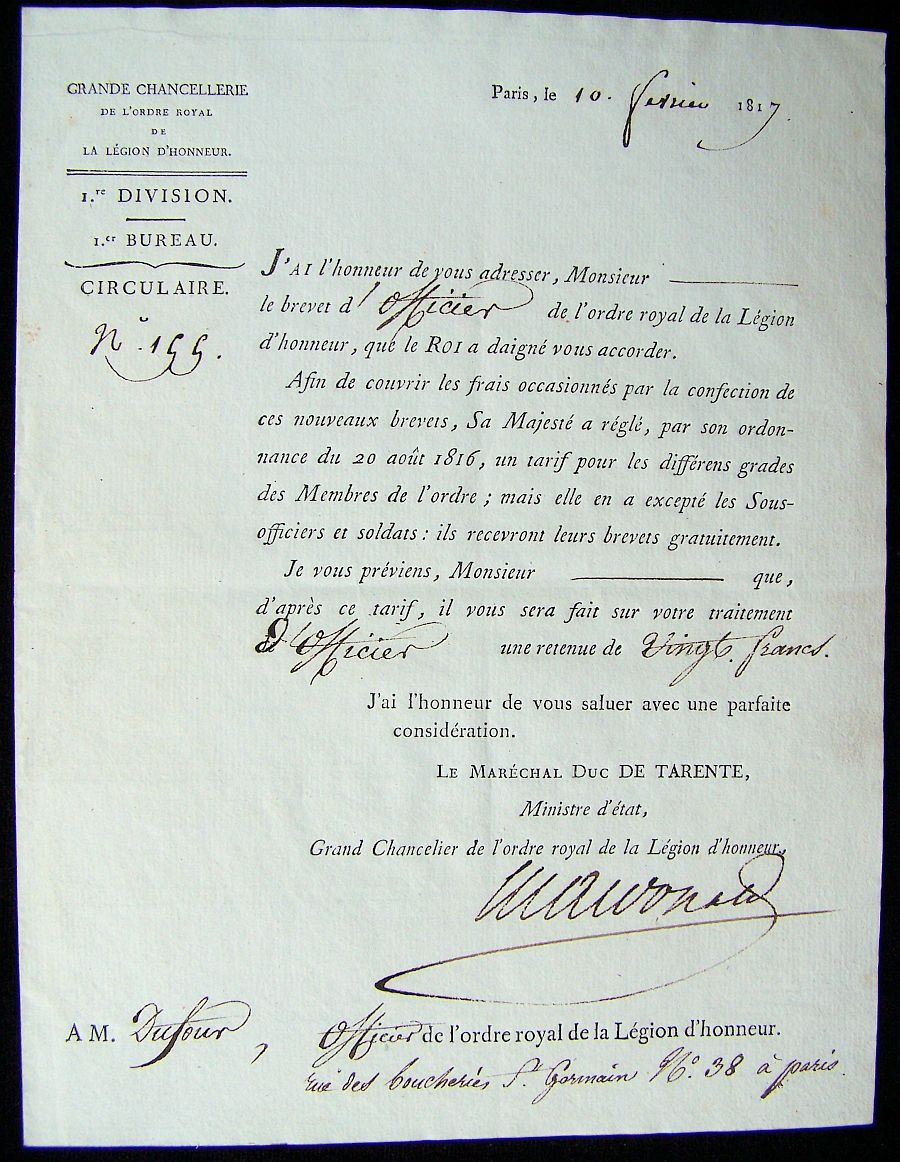 GRANDE CHANCELLERIE
DE L'ORDRE ROYAL
DE
LA LÉGION D'HONNEUR.
1.re DIVISION.
1.er BUREAU.
CIRCULAIRE.
N.o 155.
Paris, le 10. fevrier 1817.
J'AI l'honneur de vous adresser, Monsieur
le brevet d'Officier de l'ordre royal de la Légion
d'honneur, que le ROI a daigné vous accorder.
Afin de couvrir les frais occasionnés par la confection de
ces nouveaux brevets, Sa Majesté a réglé, par son ordon-
nance du 20 août 1816, un tarif pour les différens grades
des Membres de l'ordre ; mais elle en a excepté les Sous-
officiers et soldats : ils recevront leurs brevets gratuitement.
Je vous préviens, Monsieur que,
d'après ce tarif, il vous sera fait sur votre traitement
D'Officier une retenue de Vingt francs.
J'ai l'honneur de vous saluer avec une parfaite
considération.
LE MARÉCHAL DUC DE TARENTE,
Ministre d'état,
Grand Chancelier de l'ordre royal de la Légion d'honneur,
Macdonald
A M. Dufour, Officier de l'ordre royal de la Légion d'honneur.
rue des boucheries St. Germain No. 38 à paris.